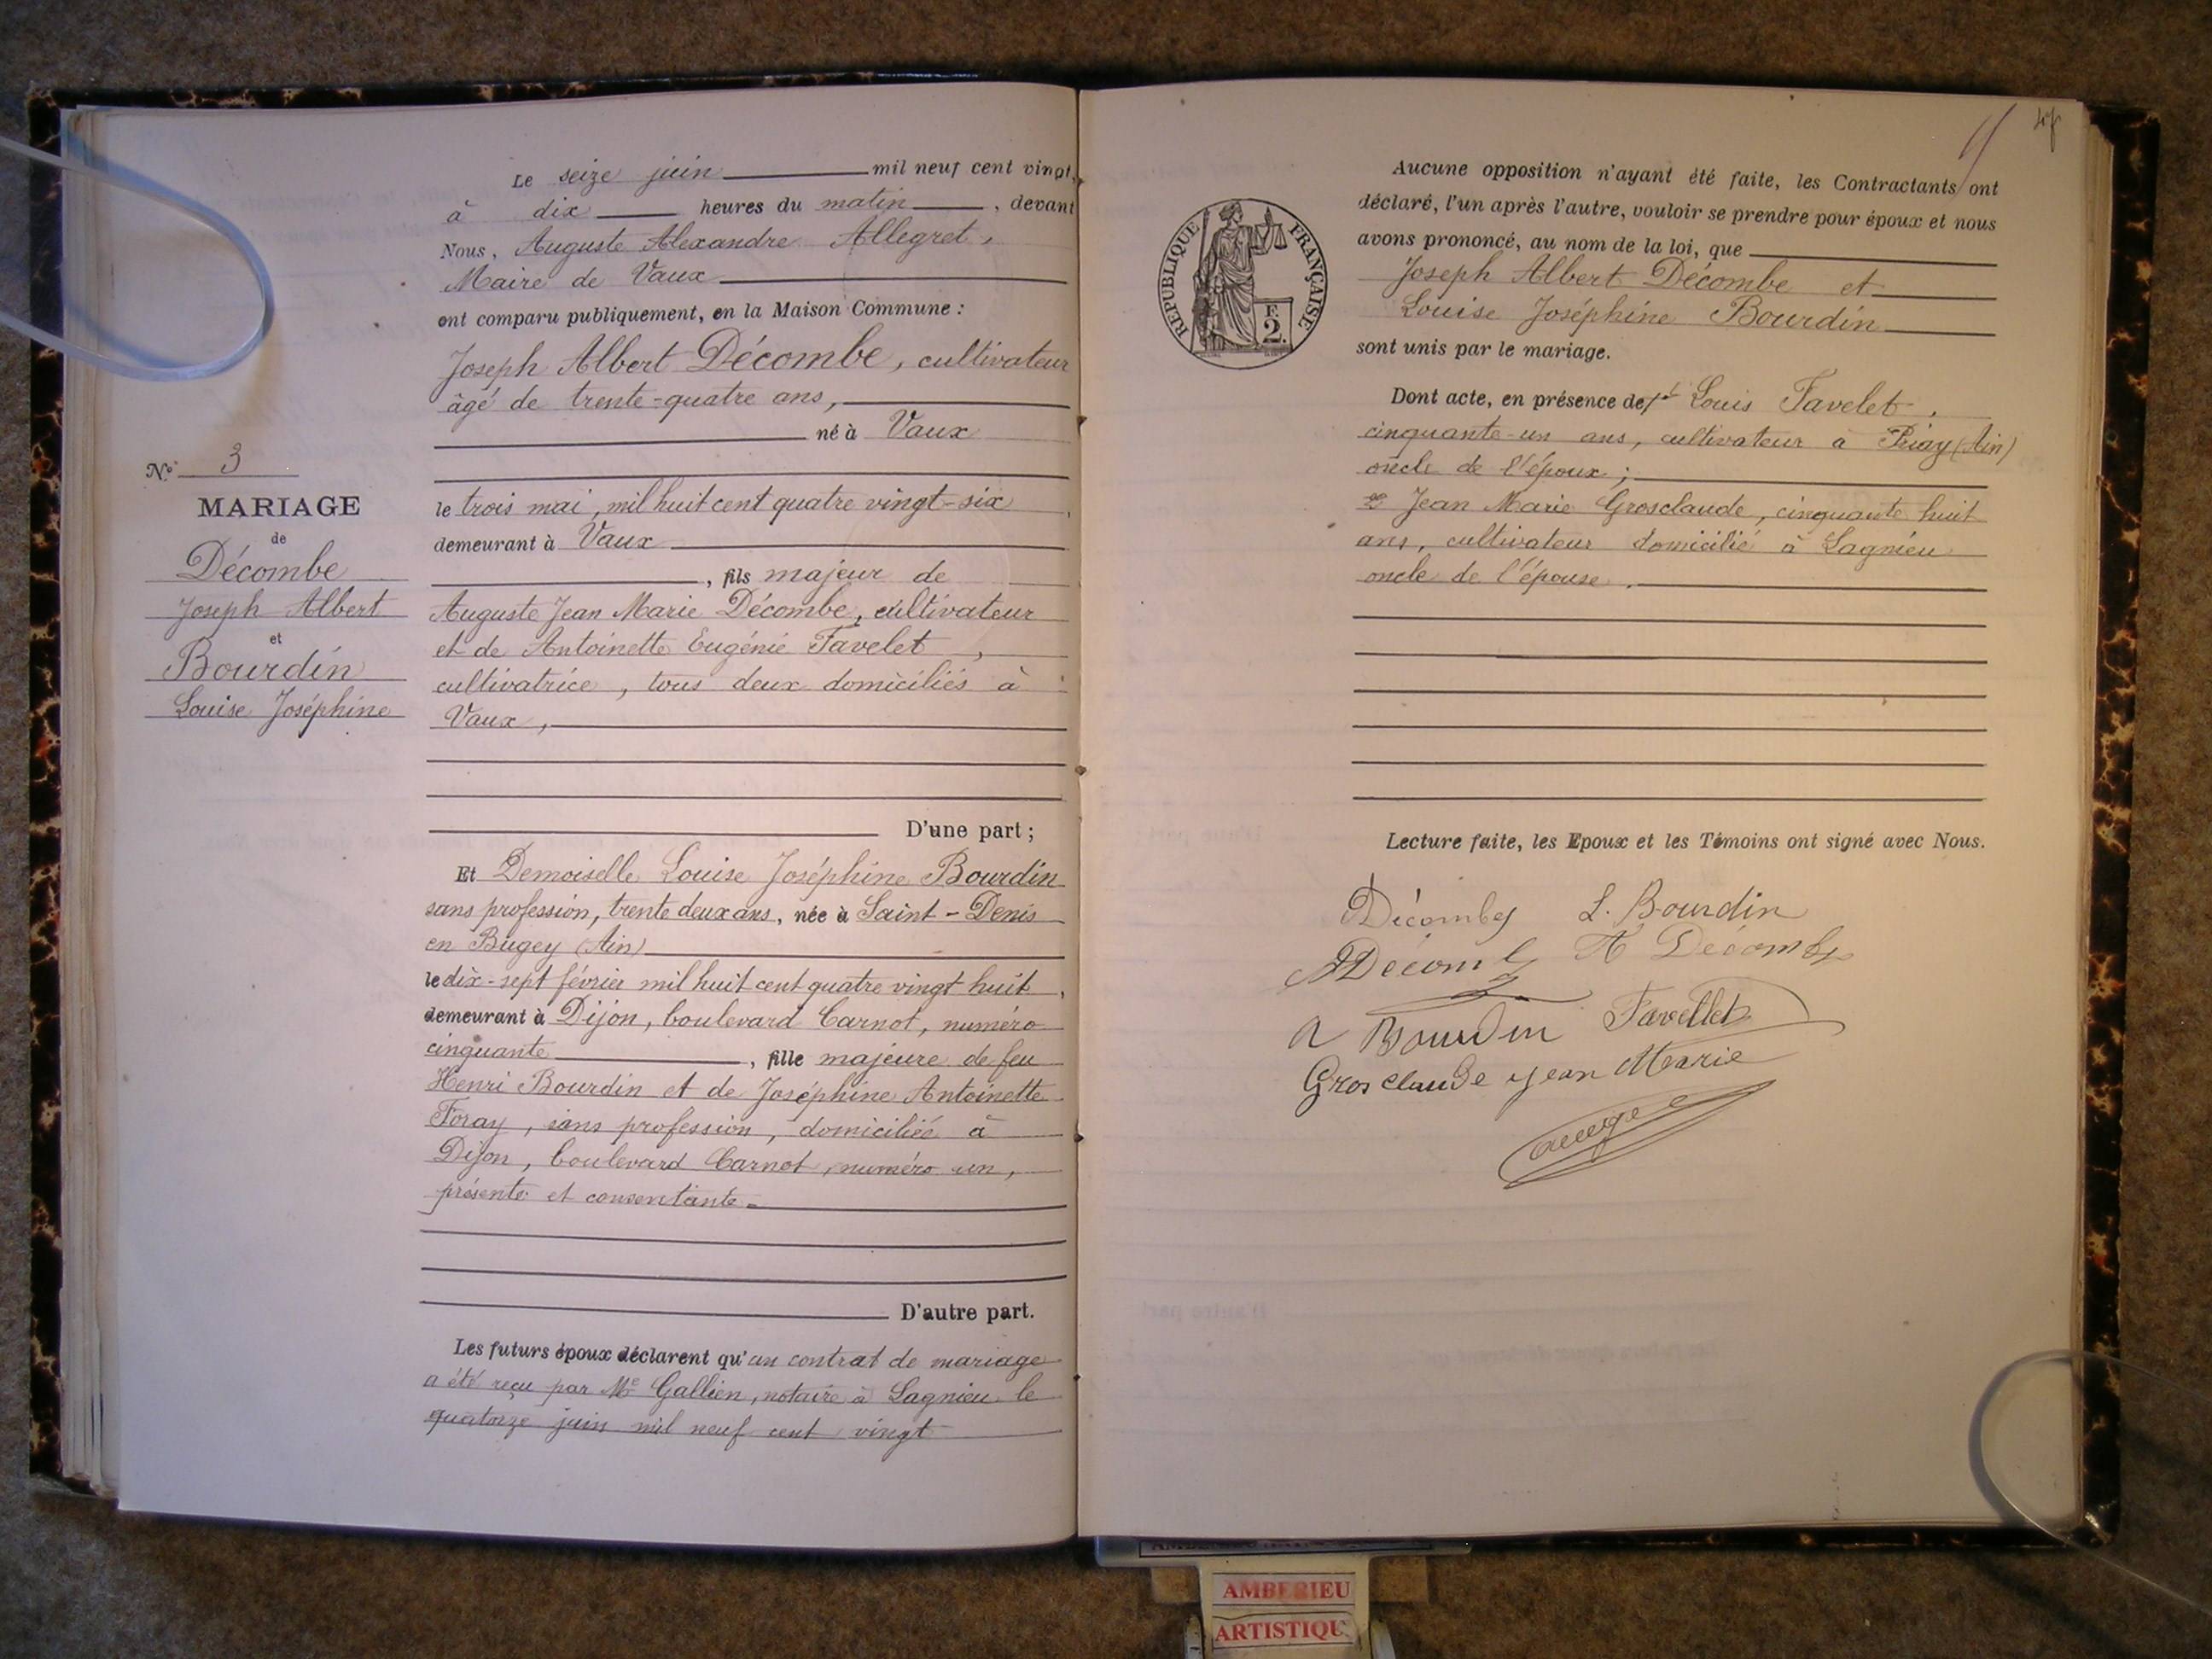 Le seize juin mil neuf cent vingt,
à dix heures du matin, devant
Nous, Auguste Alexandre Allegret,
Maire de Vaux
ont comparu publiquement, en la Maison Commune :
Joseph Albert Décombe, cultivateur
âgé de trente-quatre ans,
né à Vaux
le trois mai, mil huit cent quatre vingt-six,
demeurant à Vaux
, fils majeur de
Auguste Jean Marie Décombe, cultivateur
et de Antoinette Eugénie Favelet,
cultivatrice, tous deux domiciliés à
Vaux,
D'une part ;
Et Demoiselle Louise Joséphine Bourdin
sans profession, trente deux ans, née à Saint-Denis
en Bugey (Ain)
le dix-sept février mil huit cent quatre vingt huit,
demeurant à Dijon, boulevard Carnot, numéro
cinquante, fille majeure de feu
Henri Bourdin et de Joséphine Antoinette
Foray, sans profession, domiciliée à
Dijon, boulevard Carnot, numéro un,
présente et consentante.
D'autre part.
Les futurs époux déclarent qu'un contrat de mariage
a été reçu par Me Gallien, notaire à Lagnieu le
quatorze juin mil neuf cent vingt
No 3
MARIAGE
de
Décombe
Joseph Albert
et
Bourdin
Louise Joséphine
47
REPUBLIQUE FRANÇAISE
F.
2.
Aucune opposition n'ayant été faite, les Contractants ont
déclaré, l'un après l'autre, vouloir se prendre pour époux et nous
avons prononcé, au nom de la loi, que
Joseph Albert Décombe et
Louise Joséphine Bourdin
sont unis par le mariage.
Dont acte, en présence de Louis Favelet,
cinquante-un ans, cultivateur à Priay (Ain)
oncle de l'époux ;
Jean Marie Grosclaude, cinquante huit
ans, cultivateur domicilié à Lagnieu
oncle de l'épouse.
Lecture faite, les Epoux et les Témoins ont signé avec Nous.
Décombe L. Bourdin
Décombe A Décombe
A Bourdin Favellet
Gros claude jean Marie
AMBERIEU
ARTISTIQU